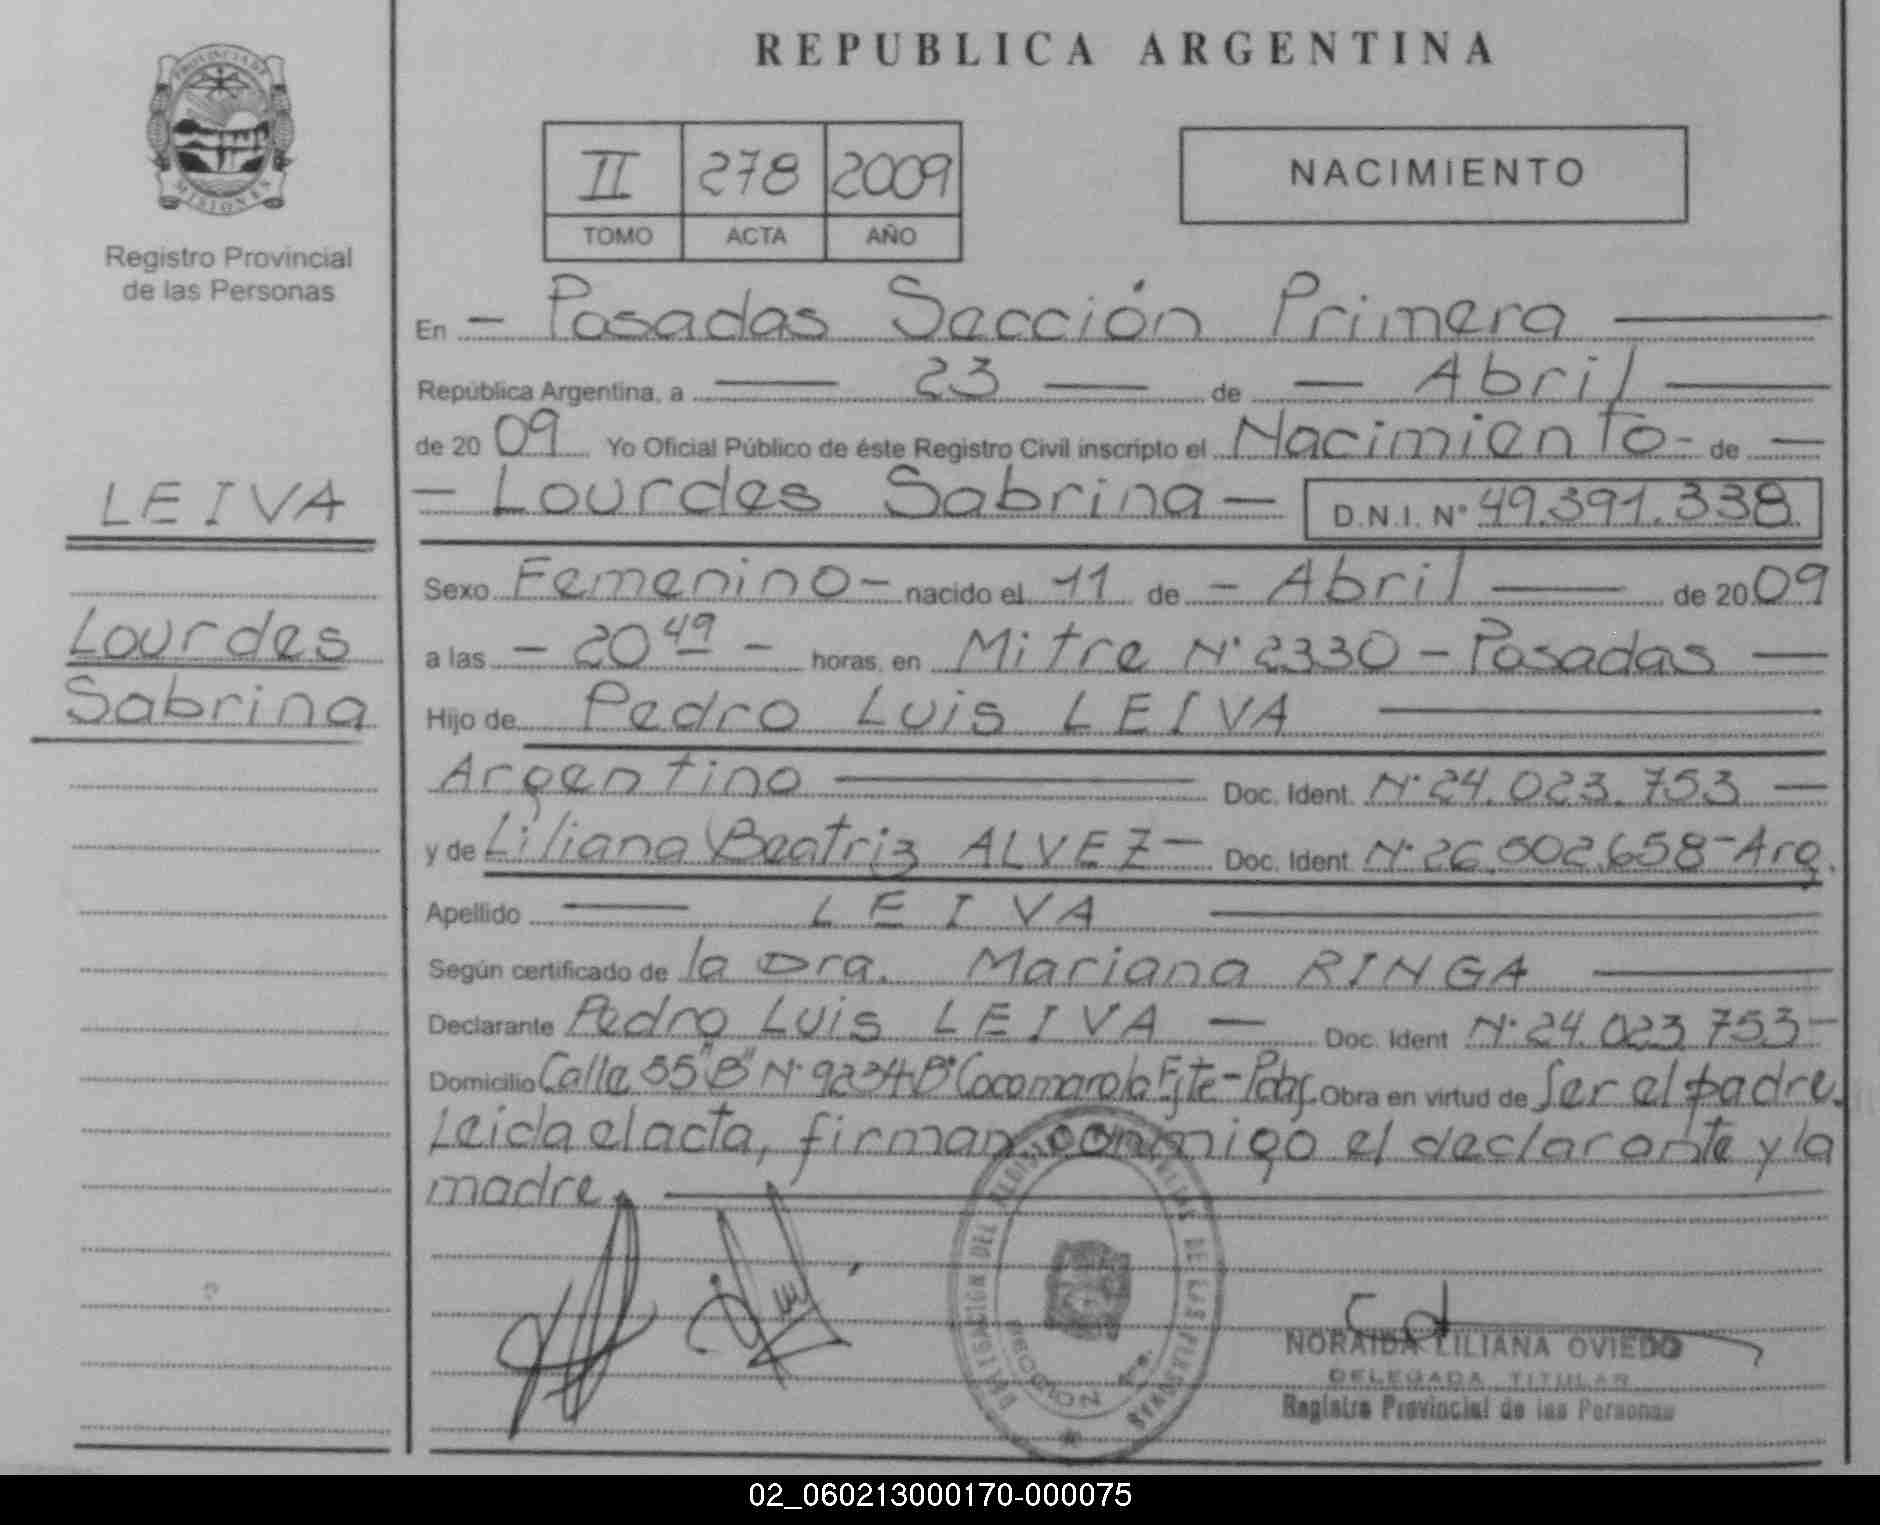 REPUBLICA ARGENTINA
PROVINCIA DE
MISIONES
Registro Provincial
de las Personas
II 278 2009
TOMO ACTA AÑO
NACIMIENTO
En - Posadas Sección Primera
República Argentina, a 23 de Abril
de 2009 Yo Oficial Público de éste Registro Civil inscripto el Nacimiento - de -
- Lourdes Sabrina - D.N.I. Nº 49.391.338
LEIVA
Lourdes
Sabrina
Sexo Femenino - nacido el 11 de - Abril de 2009
a las - 20 49 - horas, en Mitre Nº 2330 - Posadas
Hijo de Pedro Luis LEIVA
Argentino Doc. Ident. Nº 24.023.753
y de Liliana Beatriz ALVEZ - Doc. Ident. Nº 26.502.658 - Arg.
Apellido LEIVA
Según certificado de la Dra. Mariana RINGA
Declarante Pedro Luis LEIVA - Doc. Ident Nº 24.023.753 -
Domicilio Calle 55 "B" Nº 9234 Bº Cocomarola - Obra en virtud de Ser el padre.
Leida el acta, firman conmigo el declarante y la
madre.
DELEGACION DEL REGISTRO PROVINCIAL DE LAS PERSONAS
SECCION 1ª
NORAIDA LILIANA OVIEDO
DELEGADA TITULAR
Registro Provincial de las Personas
02_060213000170-000075